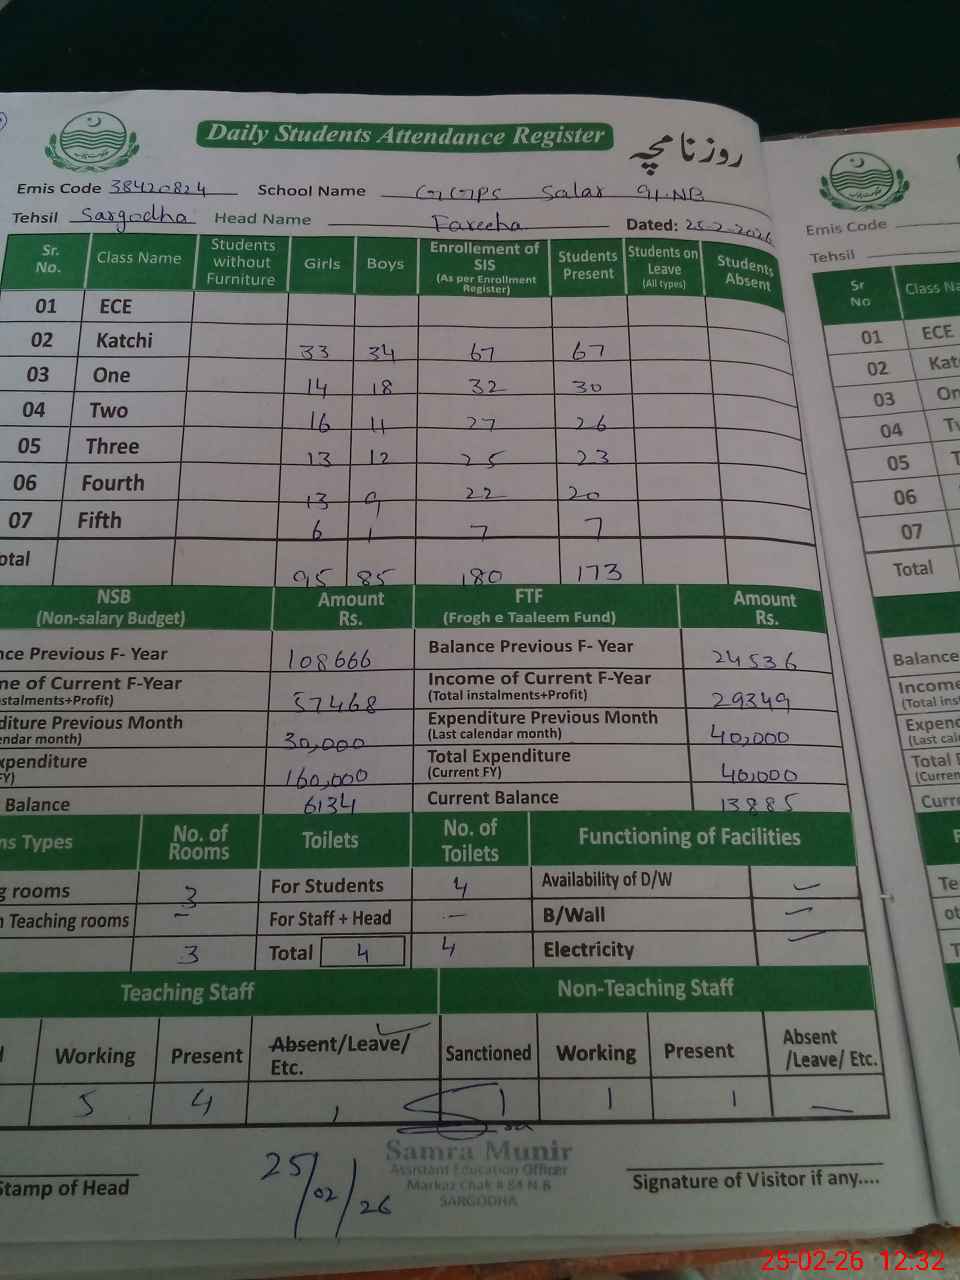 Daily Students Attendance Register
روزنامچہ
Emis Code 38420824 School Name GGPS Salar 91.NB
Tehsil Sargodha Head Name Fareeha Dated: 25-2-2026
Sr. No. Class Name Students without Furniture Girls Boys Enrollement of SIS (As per Enrollment Register) Students Present Students on Leave (All types) Students Absent
01 ECE
02 Katchi 33 34 67 67
03 One 14 18 32 30
04 Two 16 11 27 26
05 Three 13 12 25 23
06 Fourth 13 9 22 20
07 Fifth 6 1 7 7
otal 95 85 180 173
NSB (Non-salary Budget) Amount Rs. FTF (Frogh e Taaleem Fund) Amount Rs.
nce Previous F- Year 108666 Balance Previous F- Year 24536
me of Current F-Year (stalments+Profit) 57468 Income of Current F-Year (Total instalments+Profit) 29349
diture Previous Month (endar month) 30,000 Expenditure Previous Month (Last calendar month) 40,000
xpenditure FY) 160,000 Total Expenditure (Current FY) 40,000
Balance 6134 Current Balance 13885
ms Types No. of Rooms Toilets No. of Toilets Functioning of Facilities
g rooms 3 For Students 4 Availability of D/W ✓
n Teaching rooms – For Staff + Head – B/Wall ✓
3 Total 4 4 Electricity ✓
Teaching Staff Non-Teaching Staff
d Working Present Absent/Leave/ Etc. Sanctioned Working Present Absent /Leave/ Etc.
5 4 1 1 1 1 –
Samra Munir
Assistant Education Officer
Markaz Chak # 84 N.B
SARGODHA
25/02/26
Stamp of Head Signature of Visitor if any....
Emis Code
Tehsil
Sr No Class Na
01 ECE
02 Katc
03 On
04 Tw
05 T
06
07
Total
Balance
Income (Total ins
Expend (Last cal
Total E (Curren
Curre
F
Te
ot
T
25-02-26 12:32